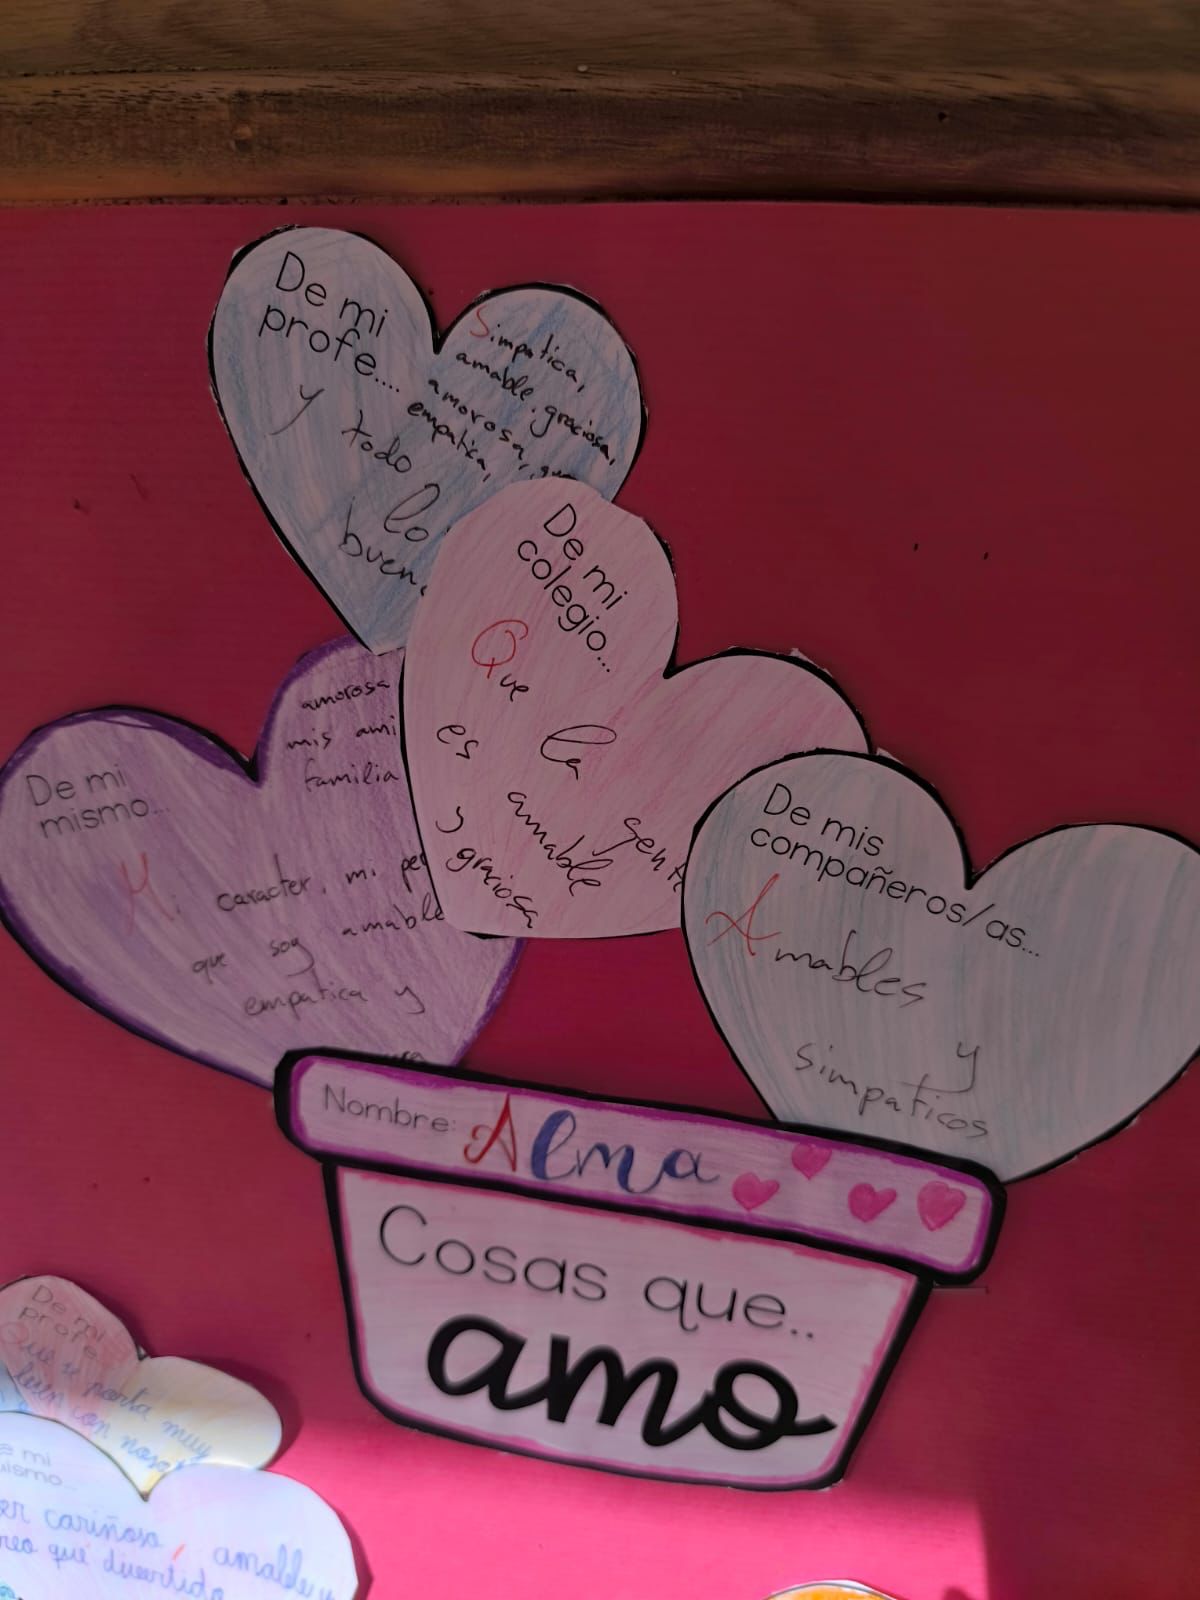 De mi
profe....
Simpatica,
amable, graciosa,
amorosa,
empatica,
y todo
lo
De mi
colegio...
Que la
es
amable
y
graciosa
De mi
mismo...
amorosa
mis
familia
Mi caracter, mi
que soy amable
empatica y
De mis
compañeros/as...
Amables
y
simpaticos
Nombre: Alma
Cosas que..
amo
De mi
profe
Que se porta muy
bien con
mi
cariñoso, amable y
que divertido